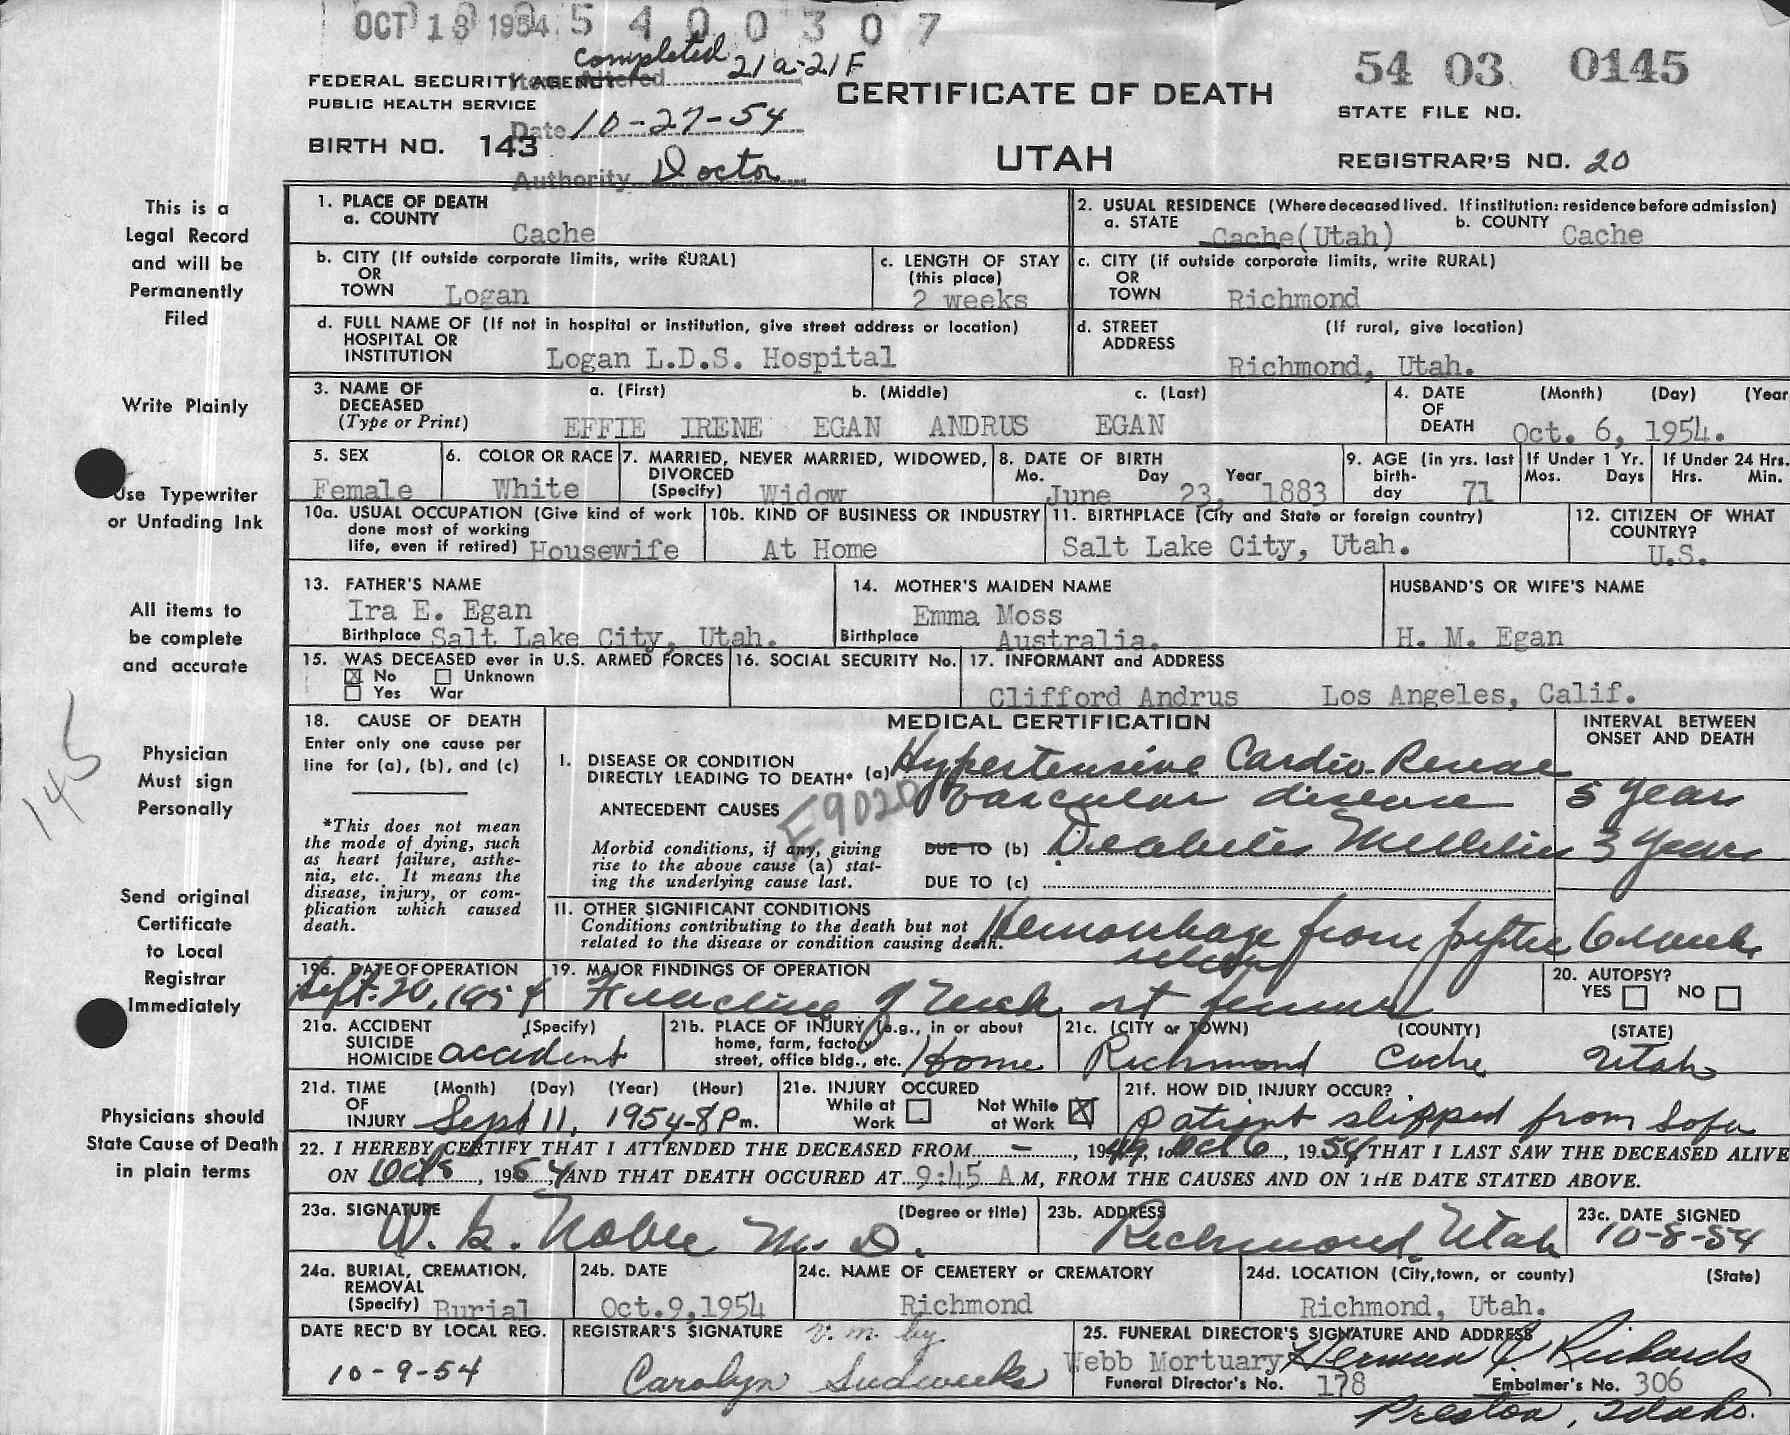 OCT 13 1954 5 4 0 0 3 0 7
Completed 21a-21F
54 03 0145
FEDERAL SECURITY AGENCY
PUBLIC HEALTH SERVICE
CERTIFICATE OF DEATH
STATE FILE NO.
Date 10-27-54
BIRTH NO. 143
UTAH
REGISTRAR'S NO. 20
Authority Doctor
This is a
Legal Record
and will be
Permanently
Filed
Write Plainly
Use Typewriter
or Unfading Ink
All items to
be complete
and accurate
145
Physician
Must sign
Personally
Send original
Certificate
to Local
Registrar
Immediately
Physicians should
State Cause of Death
in plain terms
1. PLACE OF DEATH
a. COUNTY
Cache
2. USUAL RESIDENCE (Where deceased lived. If institution: residence before admission)
a. STATE Cache (Utah) b. COUNTY Cache
b. CITY (If outside corporate limits, write RURAL)
OR
TOWN Logan
c. LENGTH OF STAY
(this place)
2 weeks
c. CITY (if outside corporate limits, write RURAL)
OR
TOWN Richmond
d. FULL NAME OF (If not in hospital or institution, give street address or location)
HOSPITAL OR
INSTITUTION Logan L.D.S. Hospital
d. STREET (If rural, give location)
ADDRESS
Richmond, Utah.
3. NAME OF a. (First) b. (Middle) c. (Last)
DECEASED
(Type or Print) EFFIE IRENE EGAN ANDRUS EGAN
4. DATE (Month) (Day) (Year
OF
DEATH Oct. 6, 1954.
5. SEX
Female
6. COLOR OR RACE
White
7. MARRIED, NEVER MARRIED, WIDOWED,
DIVORCED
(Specify) Widow
8. DATE OF BIRTH
Mo. Day Year
June 23, 1883
9. AGE (in yrs. last
birth-
day 71
If Under 1 Yr.
Mos. Days
If Under 24 Hrs.
Hrs. Min.
10a. USUAL OCCUPATION (Give kind of work
done most of working
life, even if retired) Housewife
10b. KIND OF BUSINESS OR INDUSTRY
At Home
11. BIRTHPLACE (City and State or foreign country)
Salt Lake City, Utah.
12. CITIZEN OF WHAT
COUNTRY?
U.S.
13. FATHER'S NAME
Ira E. Egan
Birthplace Salt Lake City, Utah.
14. MOTHER'S MAIDEN NAME
Emma Moss
Birthplace Australia.
HUSBAND'S OR WIFE'S NAME
H. M. Egan
15. WAS DECEASED ever in U.S. ARMED FORCES
X No Unknown
Yes War
16. SOCIAL SECURITY No.
17. INFORMANT and ADDRESS
Clifford Andrus Los Angeles, Calif.
18. CAUSE OF DEATH
Enter only one cause per
line for (a), (b), and (c)
*This does not mean
the mode of dying, such
as heart failure, asthe-
nia, etc. It means the
disease, injury, or com-
plication which caused
death.
MEDICAL CERTIFICATION
INTERVAL BETWEEN
ONSET AND DEATH
I. DISEASE OR CONDITION
DIRECTLY LEADING TO DEATH* (a) Hypertensive Cardio-Renal
ANTECEDENT CAUSES E9020 vascular disease 5 years
Morbid conditions, if any, giving
rise to the above cause (a) stat-
ing the underlying cause last.
DUE TO (b) Diabetes Mellitus 3 years
DUE TO (c)
II. OTHER SIGNIFICANT CONDITIONS
Conditions contributing to the death but not
related to the disease or condition causing death.
Hemorrhage from peptic 6 weeks
ulcer
19a. DATE OF OPERATION
Sept. 20, 1954
19. MAJOR FINDINGS OF OPERATION
Fracture of neck rt femur
20. AUTOPSY?
YES NO
21a. ACCIDENT (Specify)
SUICIDE
HOMICIDE accident
21b. PLACE OF INJURY (e.g., in or about
home, farm, factory
street, office bldg., etc. Home
21c. (CITY or TOWN) (COUNTY) (STATE)
Richmond Cache Utah
21d. TIME (Month) (Day) (Year) (Hour)
OF
INJURY Sept 11, 1954-8 Pm.
21e. INJURY OCCURED
While at Work Not While at Work X
21f. HOW DID INJURY OCCUR?
patient slipped from sofa
22. I HEREBY CERTIFY THAT I ATTENDED THE DECEASED FROM - , 1949, to Oct 6, 1954 THAT I LAST SAW THE DECEASED ALIVE
ON Oct 5, 1954, AND THAT DEATH OCCURED AT 9:45 A.M, FROM THE CAUSES AND ON THE DATE STATED ABOVE.
23a. SIGNATURE (Degree or title)
W. G. Noble M. D.
23b. ADDRESS
Richmond, Utah
23c. DATE SIGNED
10-8-54
24a. BURIAL, CREMATION,
REMOVAL
(Specify) Burial
24b. DATE
Oct.9,1954
24c. NAME OF CEMETERY or CREMATORY
Richmond
24d. LOCATION (City,town, or county) (State)
Richmond, Utah.
DATE REC'D BY LOCAL REG.
10-9-54
REGISTRAR'S SIGNATURE V. M. by
Carolyn Sudweeks
25. FUNERAL DIRECTOR'S SIGNATURE AND ADDRESS
Webb Mortuary Herman J. Richards
Funeral Director's No. 178 Embalmer's No. 306
Preston, Idaho.